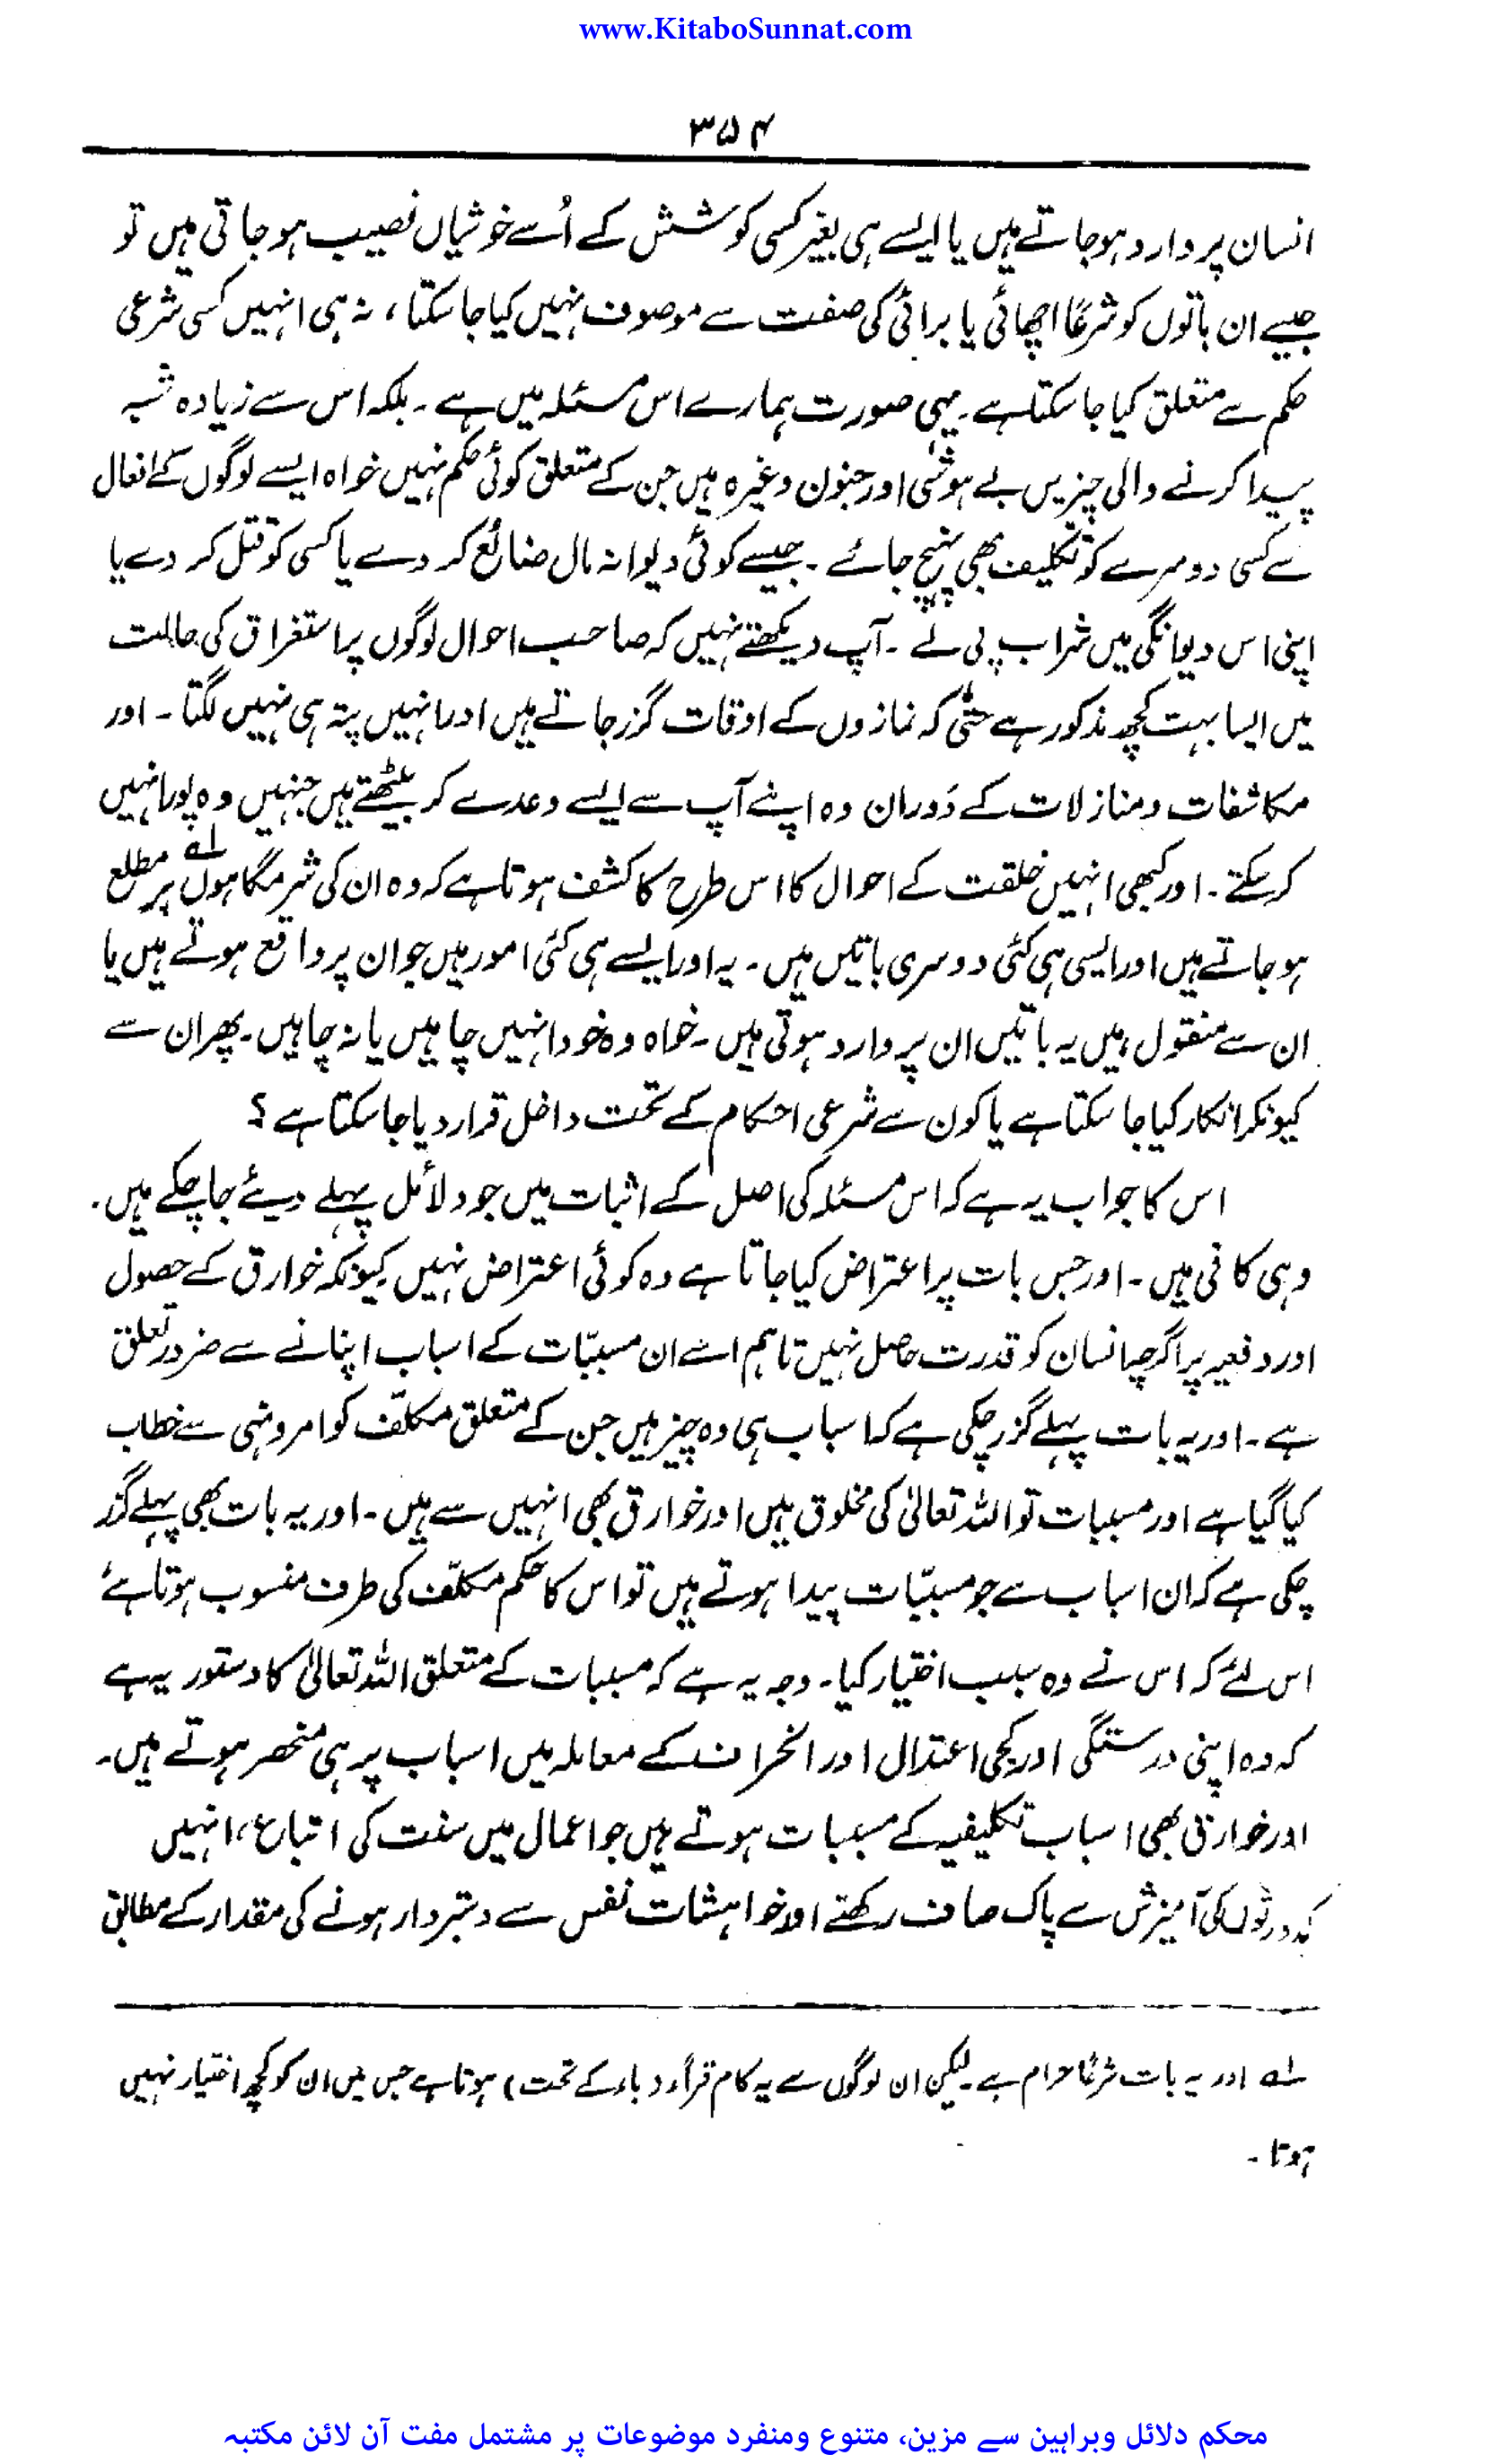 www.KitaboSunnat.com
۳۵۴
انسان پر وارد ہو جاتے ہیں یا ایسے ہی بغیر کسی کوشش کے اُسے خوشیاں نصیب ہو جاتی ہیں تو
جیسے ان باتوں کو شرعًا اچھائی یا برائی کی صفت سے موصوف نہیں کیا جا سکتا، نہ ہی انہیں کسی شرعی
حکم سے متعلق کیا جا سکتا ہے۔ یہی صورت ہمارے اس مسئلہ میں ہے۔ بلکہ اس سے زیادہ شبہ
پیدا کرنے والی چیزیں بے ہوشی اور جنون وغیرہ ہیں جن کے متعلق کوئی حکم نہیں خواہ ایسے لوگوں کے افعال
سے کسی دوسرے کو تکلیف بھی پہنچ جائے۔ جیسے کوئی دیوانہ مال ضائع کر دے یا کسی کو قتل کر دے یا
اپنی اس دیوانگی میں شراب پی لے۔ آپ دیکھتے نہیں کہ صاحب احوال لوگوں پر استغراق کی حالت
میں ایسا بہت کچھ مذکور ہے حتّٰی کہ نمازوں کے اوقات گزر جاتے ہیں اور انہیں پتہ ہی نہیں لگتا۔ اور
مکاشفات و منازلات کے دَوران وہ اپنے آپ سے ایسے وعدے کر بیٹھتے ہیں جنہیں وہ پورا نہیں
کر سکتے۔ اور کبھی انہیں خلقت کے احوال کا اس طرح کا کشف ہوتا ہے کہ وہ ان کی شرمگاہوں پر مطلع لہ
ہو جاتے ہیں اور ایسی ہی کئی دوسری باتیں ہیں۔ یہ اور ایسے ہی کئی امور ہیں جو ان پر واقع ہوتے ہیں یا
ان سے منقول ہیں یہ باتیں ان پر وارد ہوتی ہیں۔ خواہ وہ خود انہیں چاہیں یا نہ چاہیں۔ پھر ان سے
کیونکر انکار کیا جا سکتا ہے یا کون سے شرعی احکام کے تحت داخل قرار دیا جا سکتا ہے؟
اس کا جواب یہ ہے کہ اس مسئلہ کی اصل کے اثبات میں جو دلائل پہلے دیئے جا چکے ہیں۔
وہی کافی ہیں۔ اور جس بات پر اعتراض کیا جاتا ہے وہ کوئی اعتراض نہیں کیونکہ خوارق کے حصول
اور دفعیہ پر اگرچہ انسان کو قدرت حاصل نہیں تاہم اسے ان مسببّات کے اسباب اپنانے سے ضرور تعلق
ہے۔ اور یہ بات پہلے گزر چکی ہے کہ اسباب ہی وہ چیز ہیں جن کے متعلق مکلّف کو امر و نہی سے خطاب
کیا گیا ہے اور مسببات تو اللہ تعالیٰ کی مخلوق ہیں اور خوارق بھی انہیں سے ہیں۔ اور یہ بات بھی پہلے گزر
چکی ہے کہ ان اسباب سے جو مسببّات پیدا ہوتے ہیں تو اس کا حکم مکلّف کی طرف منسوب ہوتا ہے
اس لئے کہ اس نے وہ سبب اختیار کیا۔ وجہ یہ ہے کہ مسببات کے متعلق اللہ تعالیٰ کا دستور یہ ہے
کہ وہ اپنی درستگی اور کجی اعتدال اور انحراف کے معاملہ میں اسباب پر ہی منحصر ہوتے ہیں۔
اور خوارق بھی اسباب تکلیفیہ کے مسببات ہوتے ہیں جو اعمال میں سنت کی اتباع، انہیں
کدورتوں کی آمیزش سے پاک صاف رکھتے اور خواہشات نفس سے دستبردار ہونے کی مقدار کے مطابق
لہ اور یہ بات شرعًا حرام ہے۔ لیکن ان لوگوں سے یہ کام قہرًا (دباؤ کے تحت) ہوتا ہے جس میں ان کو کچھ اختیار نہیں
ہوتا۔
محکم دلائل وبراہین سے مزین، متنوع ومنفرد موضوعات پر مشتمل مفت آن لائن مکتبہ